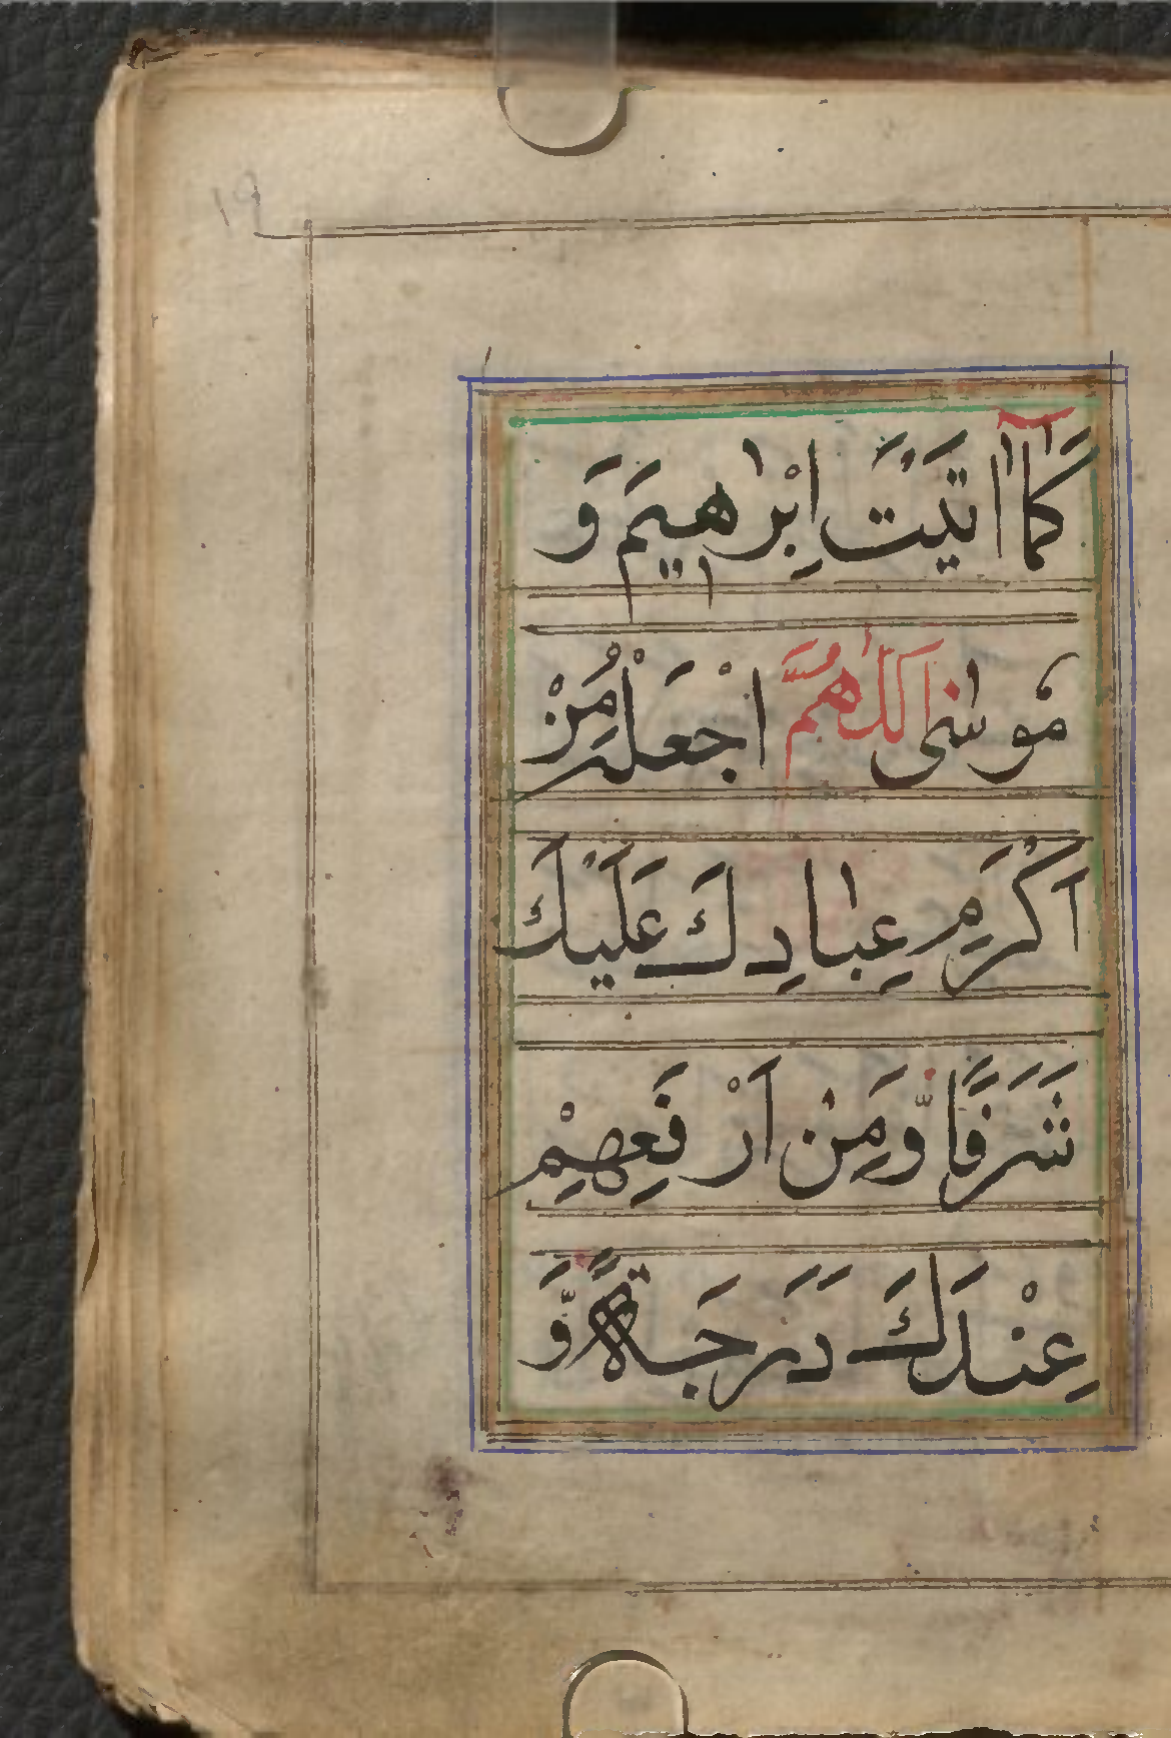 ١٩
كَمَآ اٰتَيْتَ اِبْرٰهِيْمَ وَ
مُوسٰى اَللّٰهُمَّ اجْعَلْهُ مِنْ
اَكْرَمِ عِبَادِكَ عَلَيْكَ
شَرَفًا وَّمِنْ اَرْفَعِهِمْ
عِنْدَكَ دَرَجَةً وَّ